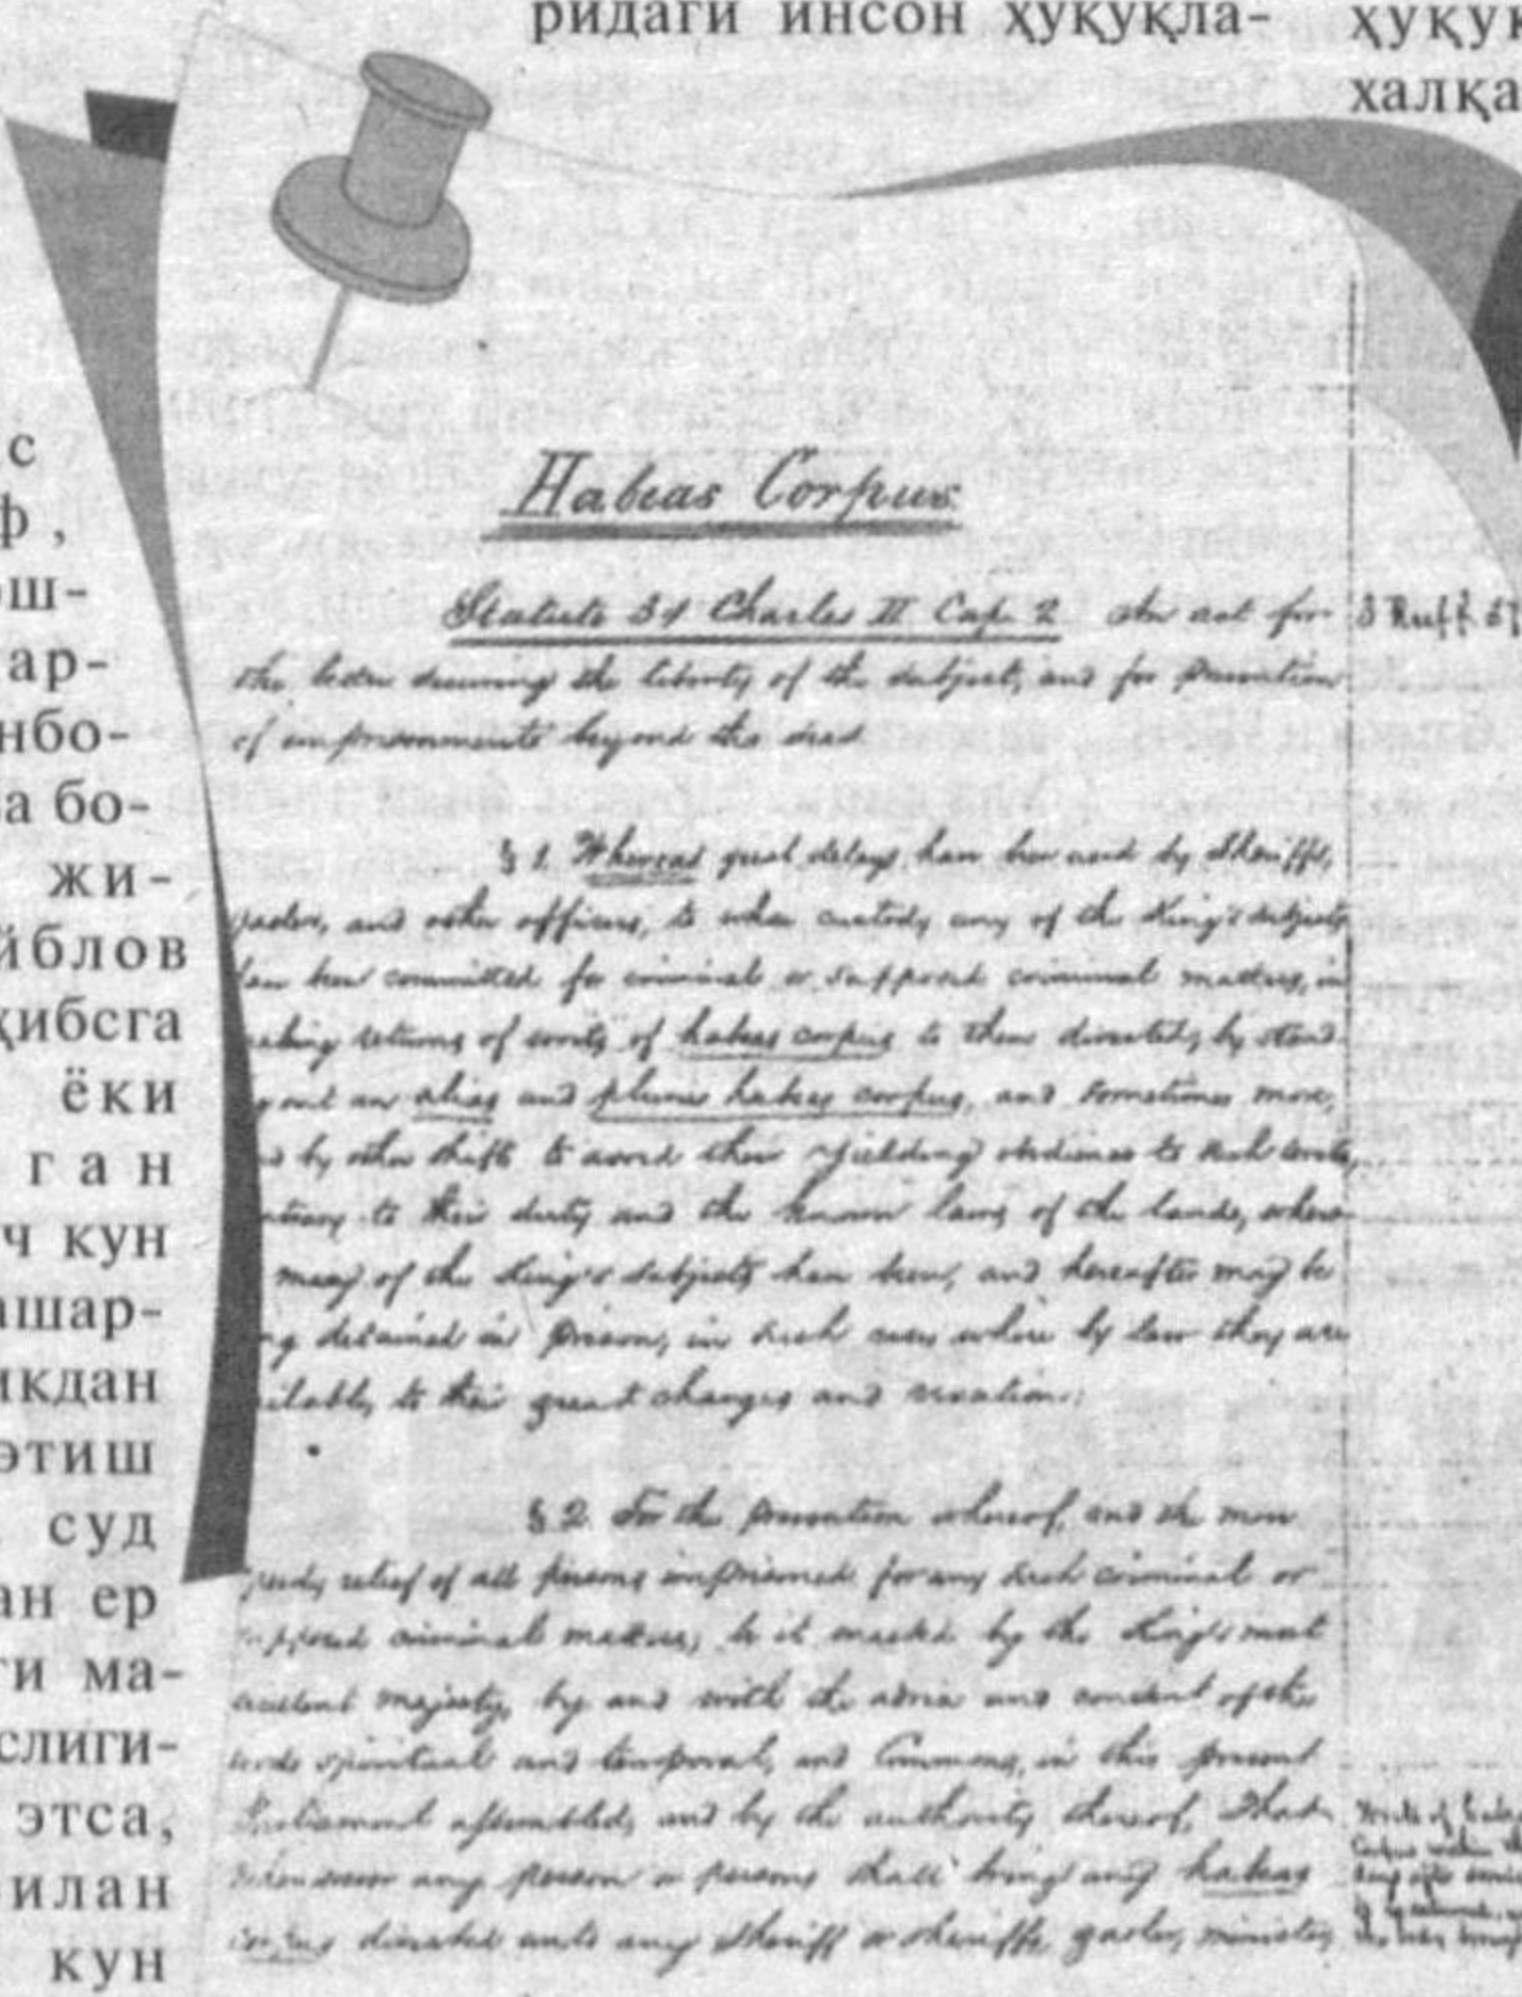 ридаги инсон ҳуқуқла-
ҳуқуқ
халқа
с
ф,
ош-
ар-
нбо-
а бо-
жи-
йблов
ҳибсга
ёки
ган
ч кун
ашар-
икдан
этиш
суд
ан ер
ги ма-
слиги-
этса,
илан
кун
Habeas Corpus
Statute 31 Charles II Cap. 2 An act for
the better securing the liberty of the subject, and for prevention
of imprisonments beyond the seas
§ 1. Whereas great delays have been used by Sheriffs,
gaolers, and other officers, to whose custody any of the King's subjects
have been committed for criminal or supposed criminal matters, in
making returns of writs of habeas corpus to them directed, by stand
out an alias and pluries habeas corpus, and sometimes more,
by other shifts to avoid their yielding obedience to such writs,
to their duty and the known laws of the lands, where
many of the King's subjects have been, and hereafter may be
detained in prison, in such cases where by law they are
to their great charges and vexation:
§ 2. For the prevention whereof, and the more
speedy relief of all persons imprisoned for any such criminal or
supposed criminal matters; be it enacted by the King's most
excellent majesty, by and with the advice and consent of the
lords spiritual and temporal, and Commons, in this present
Parliament assembled, and by the authority thereof, That
whensoever any person or persons shall bring any habeas
corpus directed unto any Sheriff or sheriffs, gaoler, minister,